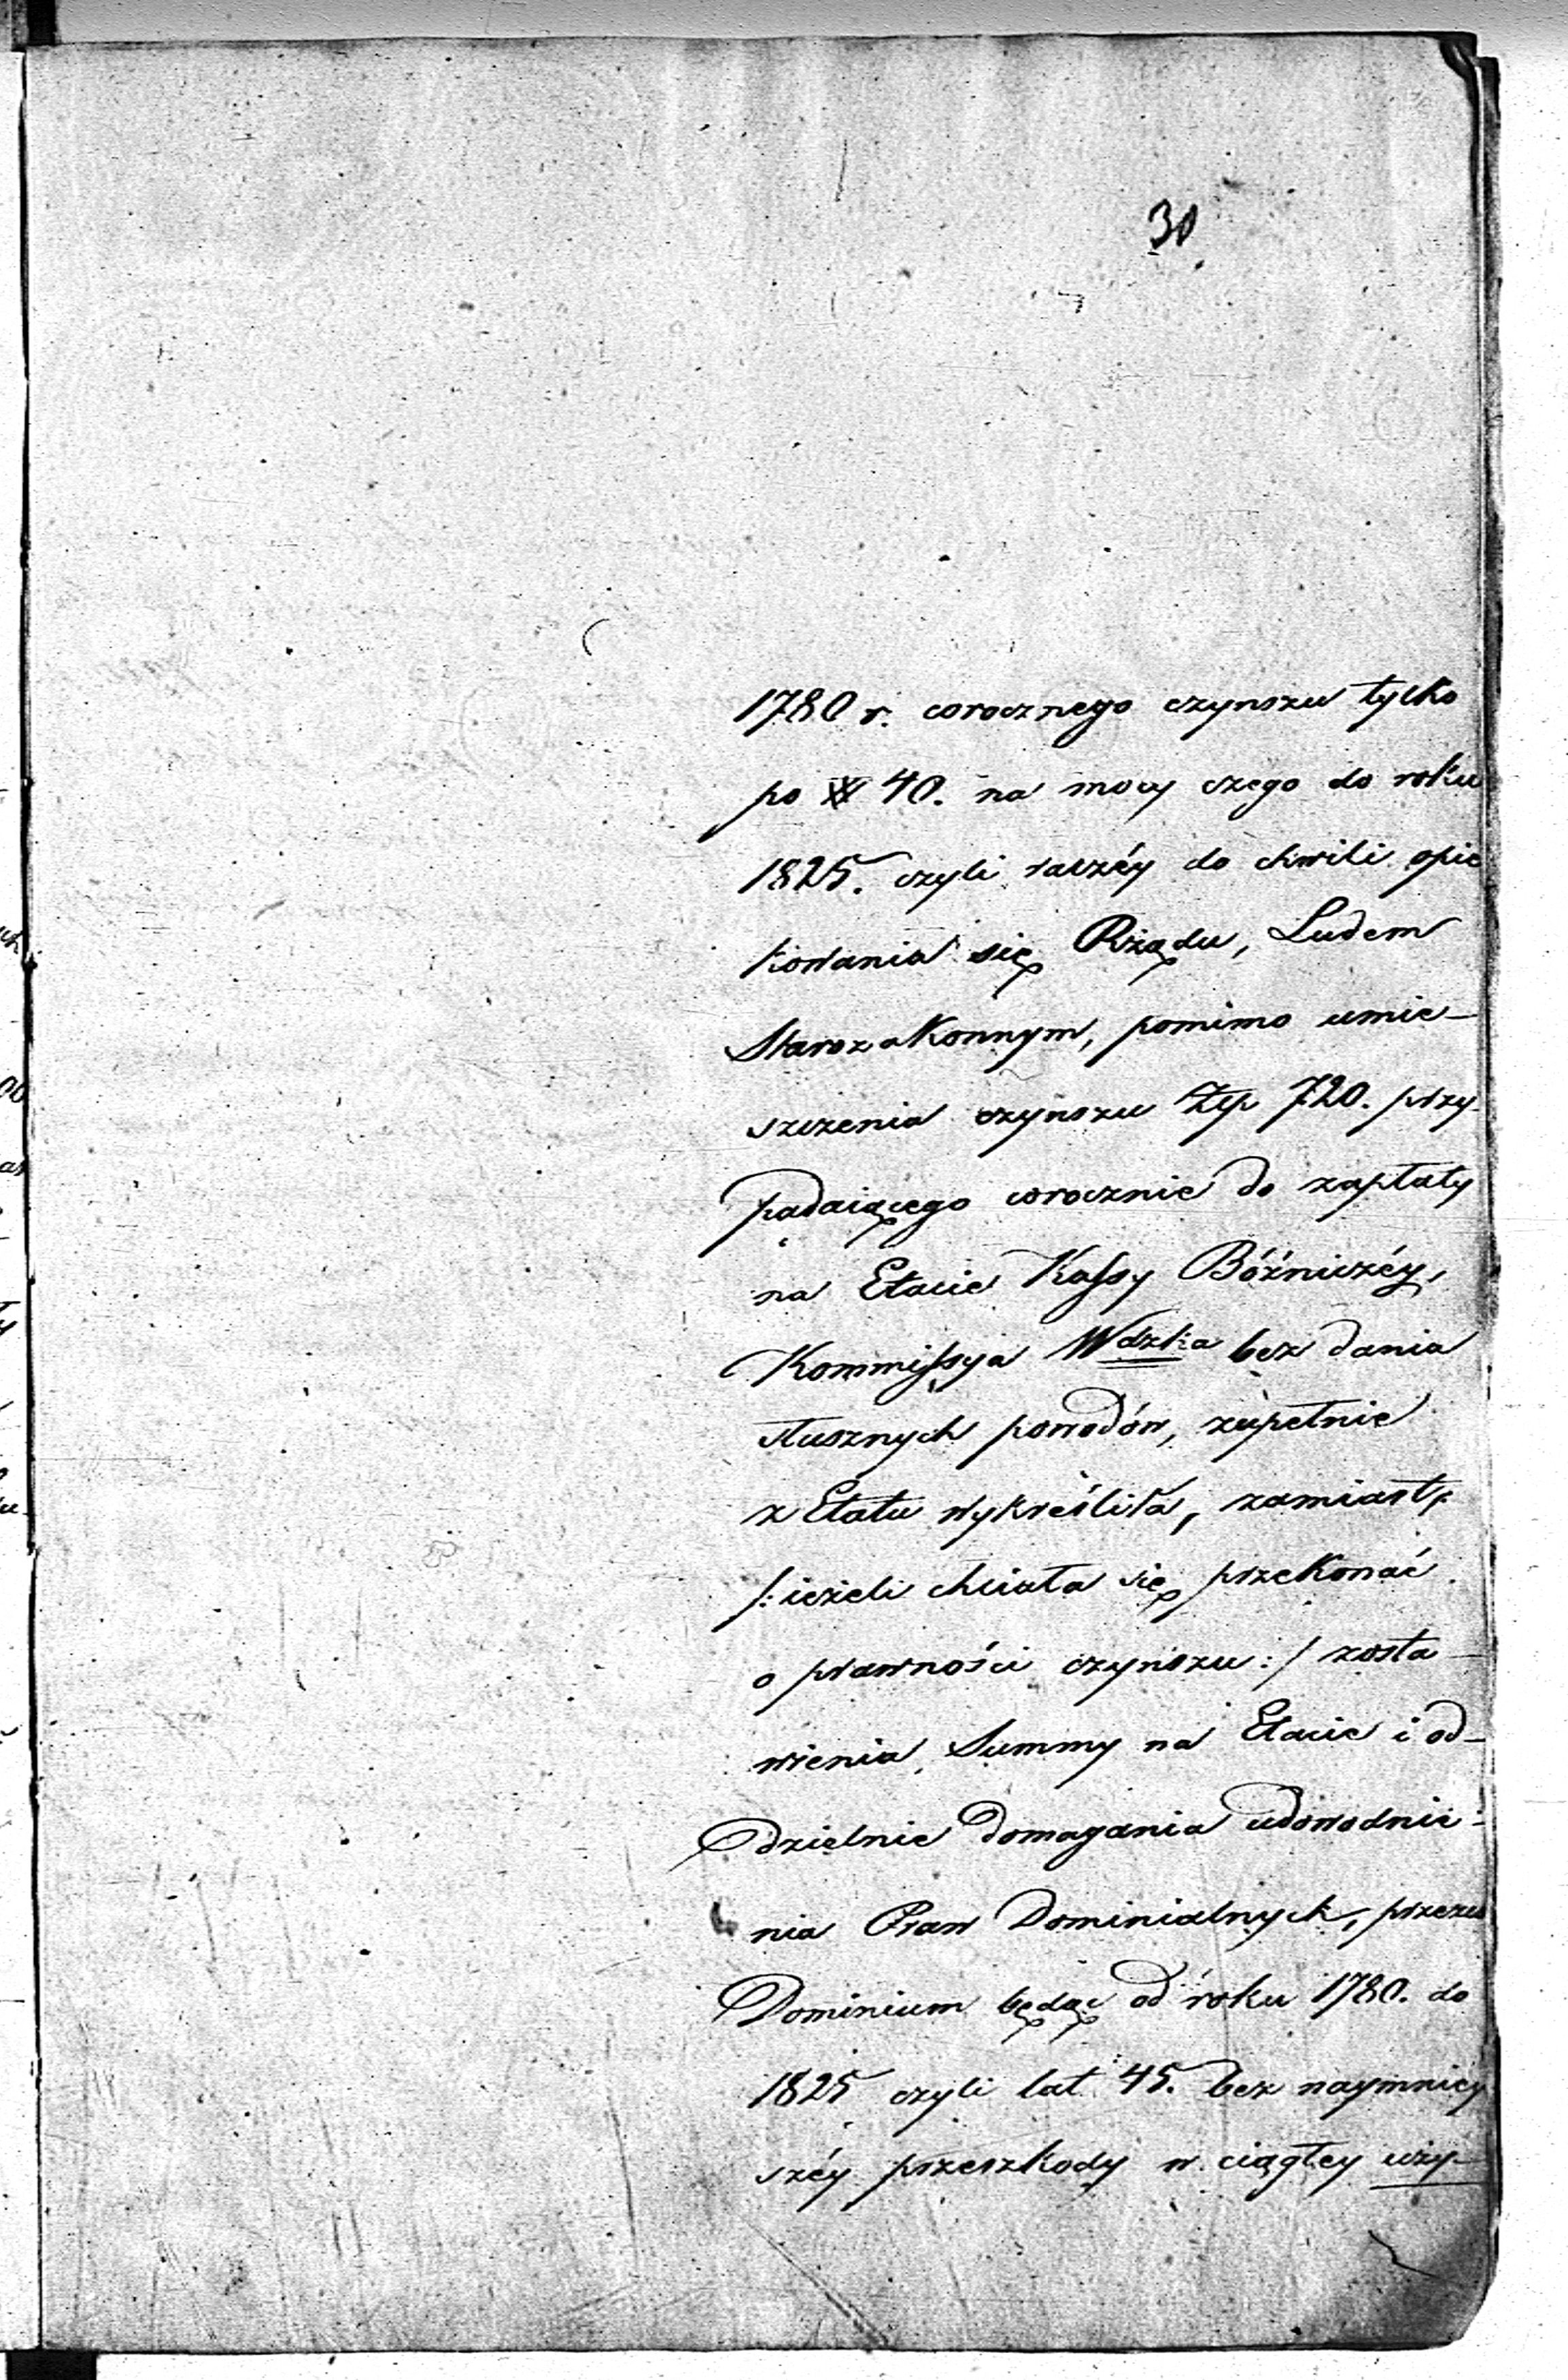 30.
1780 r. corocznego czynszu tylko
po # 40. na mocy czego do roku
1825. czyli raczéy do chwili opie
kowania się Rządu, Ludem
Starozakonnym, pomimo umie-
szczenia czynszu Złp 720. przy-
padaiącego corocznie do zapłaty
na Etacie Kassy Bóżniczéy,
Kommissya Wdzka bez dania
słusznych powodów, zupełnie
z Etatu wykréśliła, zamiast,
/: ieżeli chciała się przekonać
o prawności czynszu :/ zosta-
wienia Summy na Etacie i od-
dzielnie domagania udowodnie-
nia Praw Dominialnych, przez co
Dominium będąc od roku 1780. do
1825 czyli lat 45. bez naymniey
széy przeszkody w ciągłey uży-